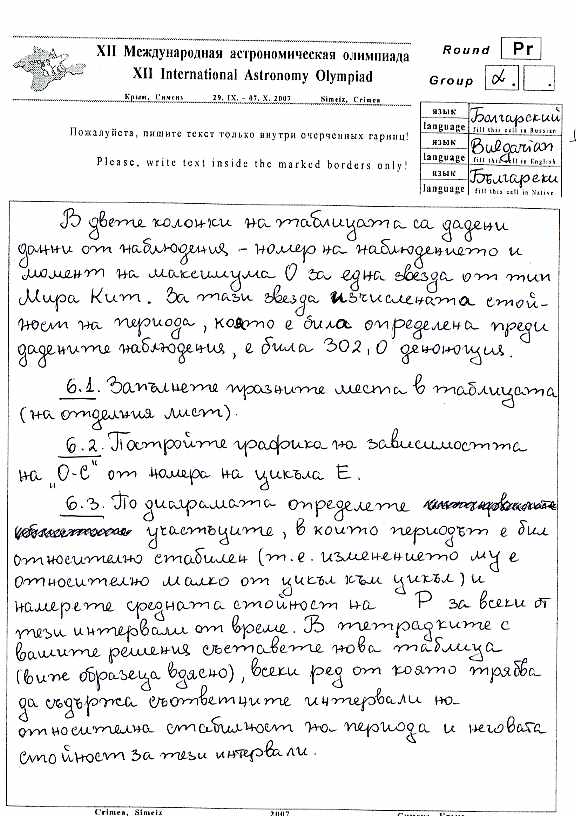 XII Международная астрономическая олимпиада
XII International Astronomy Olympiad
Крым, Симеиз 29. IX. - 07. X. 2007 Simeiz, Crimea
Round Pr
Group α.
Пожалуйста, пишите текст только внутри очерченных гарниц!
Please, write text inside the marked borders only!
язык
language
Болгарский
fill this cell in Russian
язык
language
Bulgarian
fill this cell in English
язык
language
Български
fill this cell in Native
В двете колонки на таблицата са дадени
данни от наблюдения – номер на наблюдението и
момент на максимума O за една звезда от тип
Мира Кит. За тази звезда изчислената стой-
ност на периода, която е била определена преди
дадените наблюдения, е била 302,0 денонощия.
6.1. Запълнете празните места в таблицата
(на отделния лист).
6.2. Постройте графика на зависимостта
на „O-C" от номера на цикъла E.
6.3. По диаграмата определете
участъците, в които периодът е бил
относително стабилен (т.е. изменението му е
относително малко от цикъл към цикъл) и
намерете средната стойност на P за всеки от
тези интервали от време. В тетрадките с
вашите решения съставете нова таблица
(виж образеца вдясно), всеки ред от която трябва
да съдържа съответните интервали на
относителна стабилност на периода и неговата
стойност за тези интервали.
Crimea, Simeiz 2007